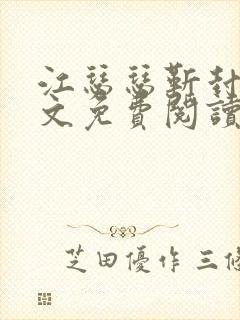 江瑟瑟靳封
文免費閱讀
芝田優作 三修